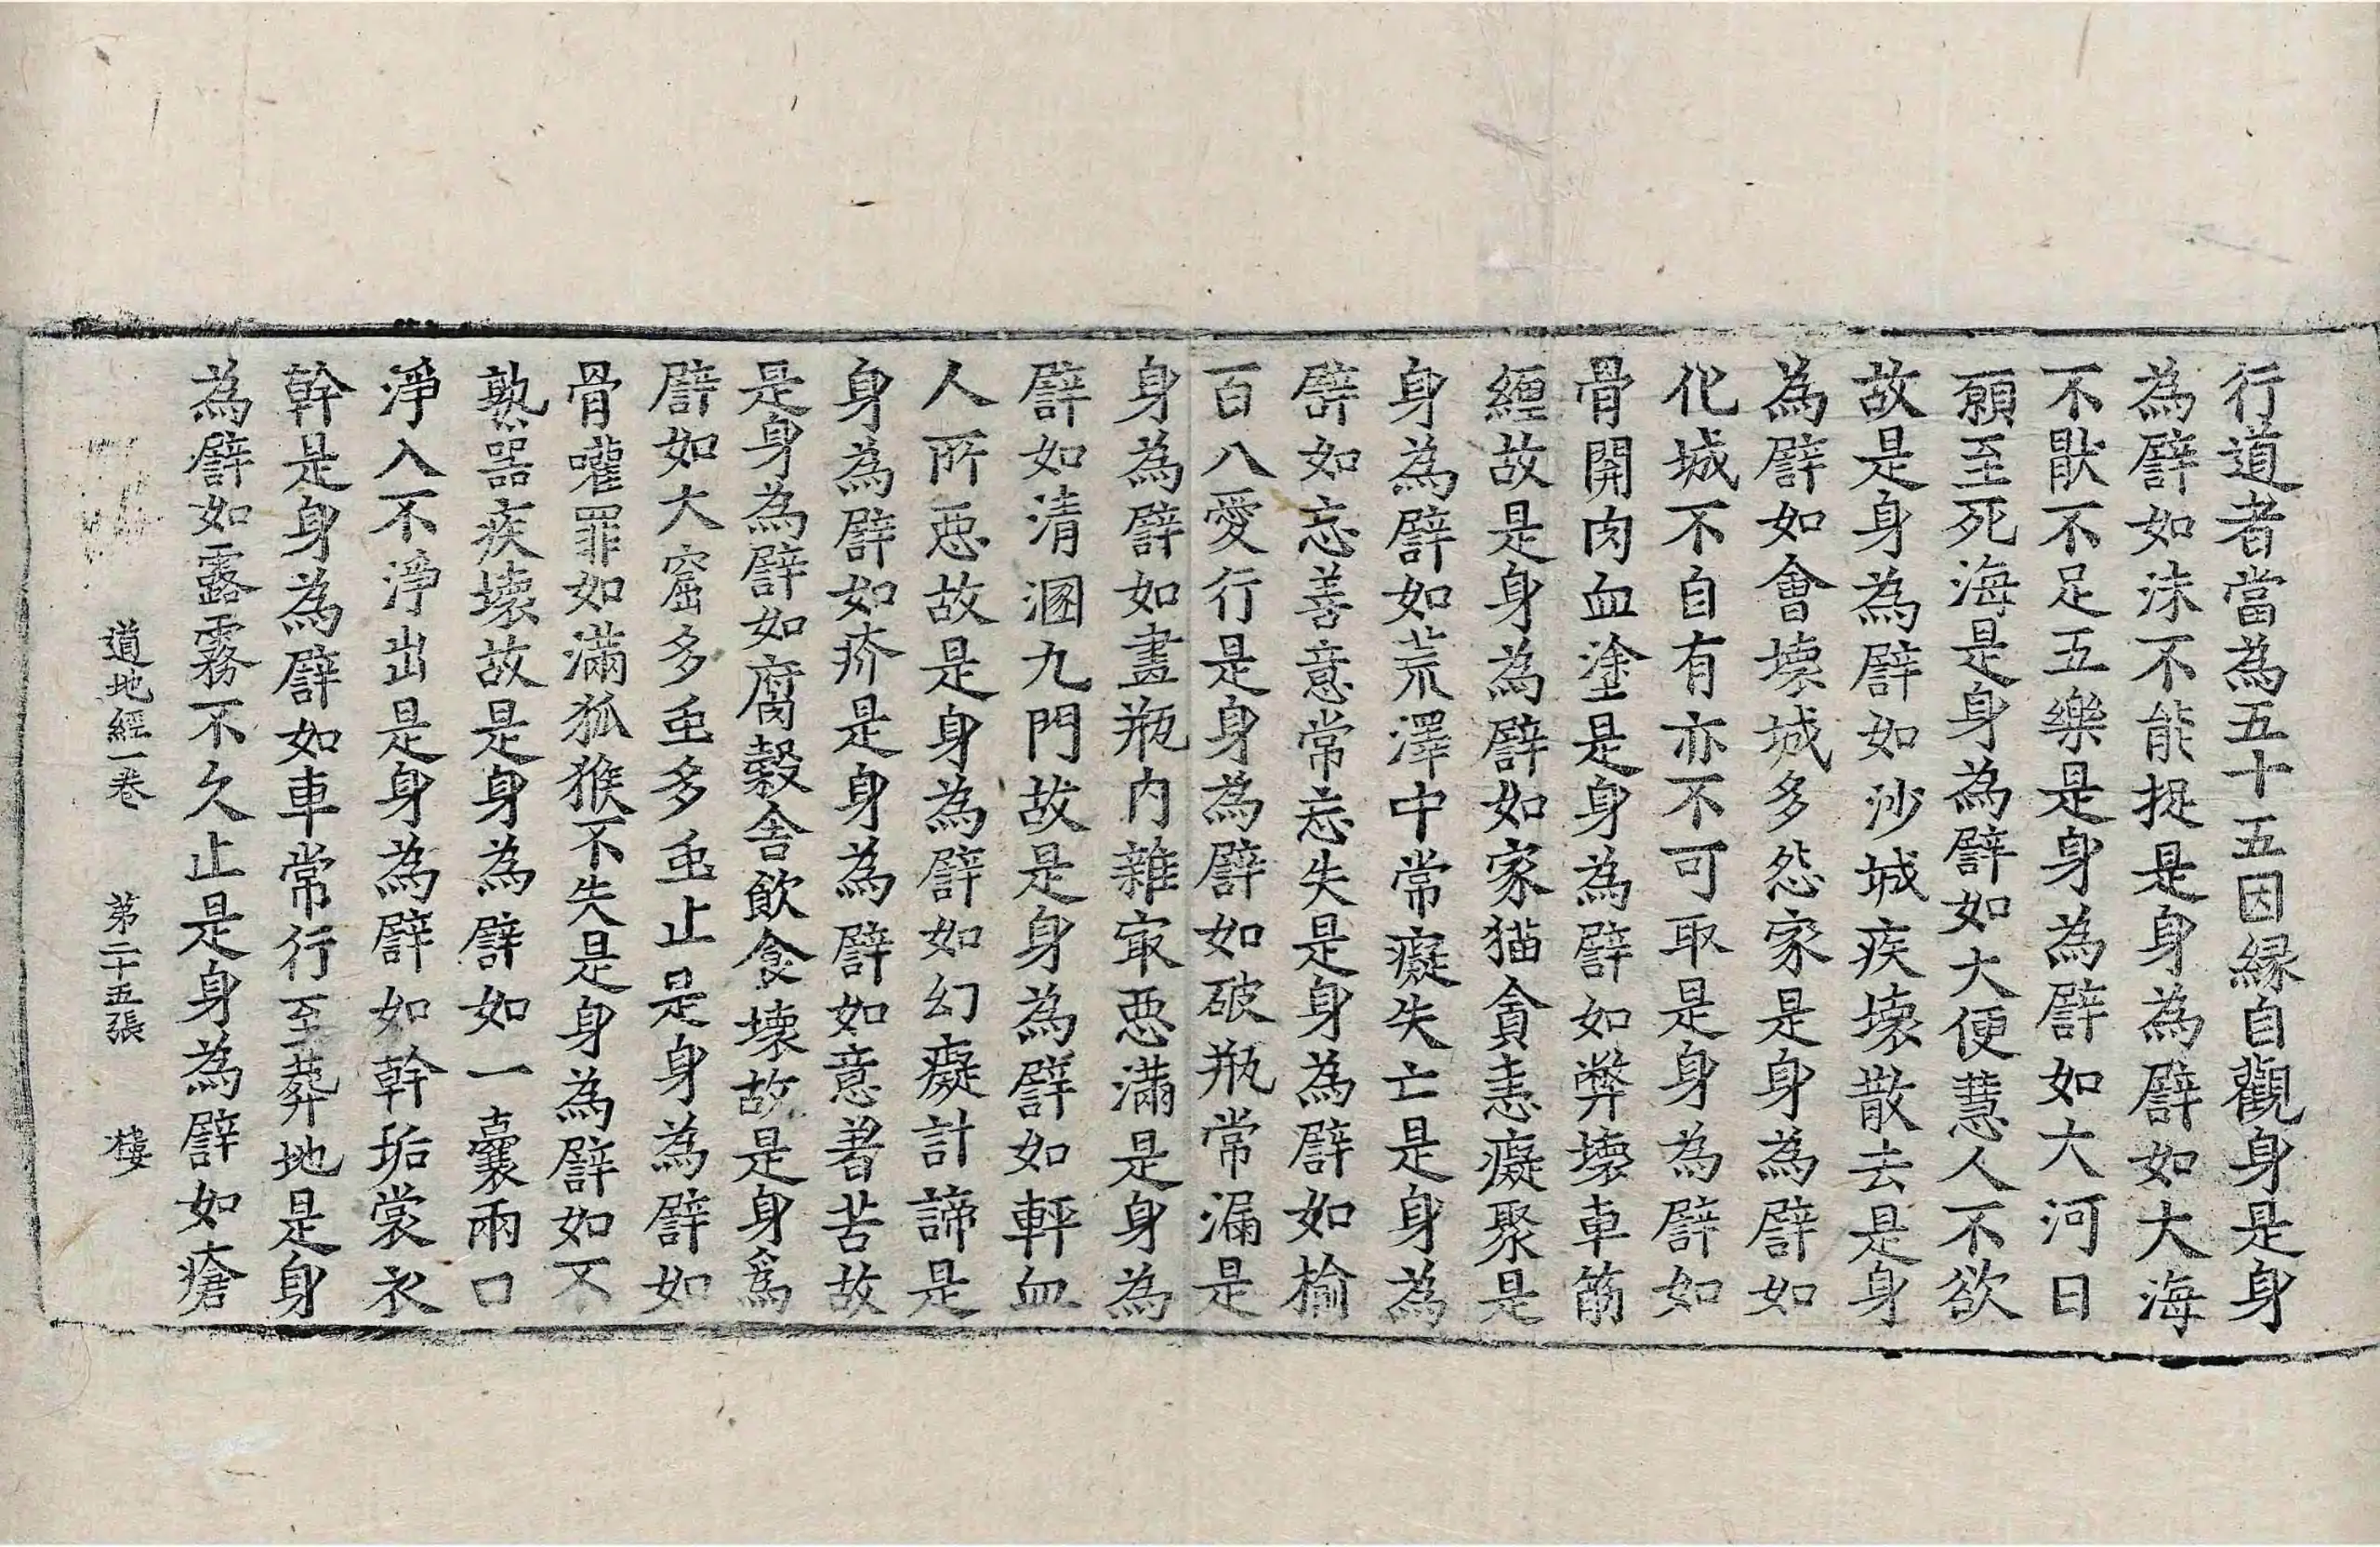 行道者當為五十五因縁自觀身是身
為譬如沫不能捉是身為譬如大海
不猒不足五樂是身為譬如大河日
願至死海是身為譬如大便慧人不欲
故是身為譬如沙城疾壞散去是身
為譬如會壞城多怨家是身為譬如
化城不自有亦不可取是身為譬如
骨關肉血塗是身為譬如弊壞車筋
纏故是身為譬如家猫貪恚癡聚是
身為譬如荒澤中常癡失亡是身為
譬如忘善意常忘失是身為譬如榆
百八愛行是身為譬如破瓶常漏是
身為譬如畫瓶內雜冣惡滿是身為
譬如清溷九門故是身為譬如軯血
人所惡故是身為譬如幻癡計諦是
身為譬如疥是身為譬如意著苦故
是身為譬如腐穀舍飲食壞故是身為
譬如大窟多虫多虫止是身為譬如
骨嚾罪如滿狐猴不失是身為譬如不
熟器疾壞故是身為譬如一囊兩口
淨入不淨出是身為譬如幹垢裳衣
幹是身為譬如車常行至葬地是身
為譬如露霧不久止是身為譬如瘡
道地經一卷 苐二十五張 樓